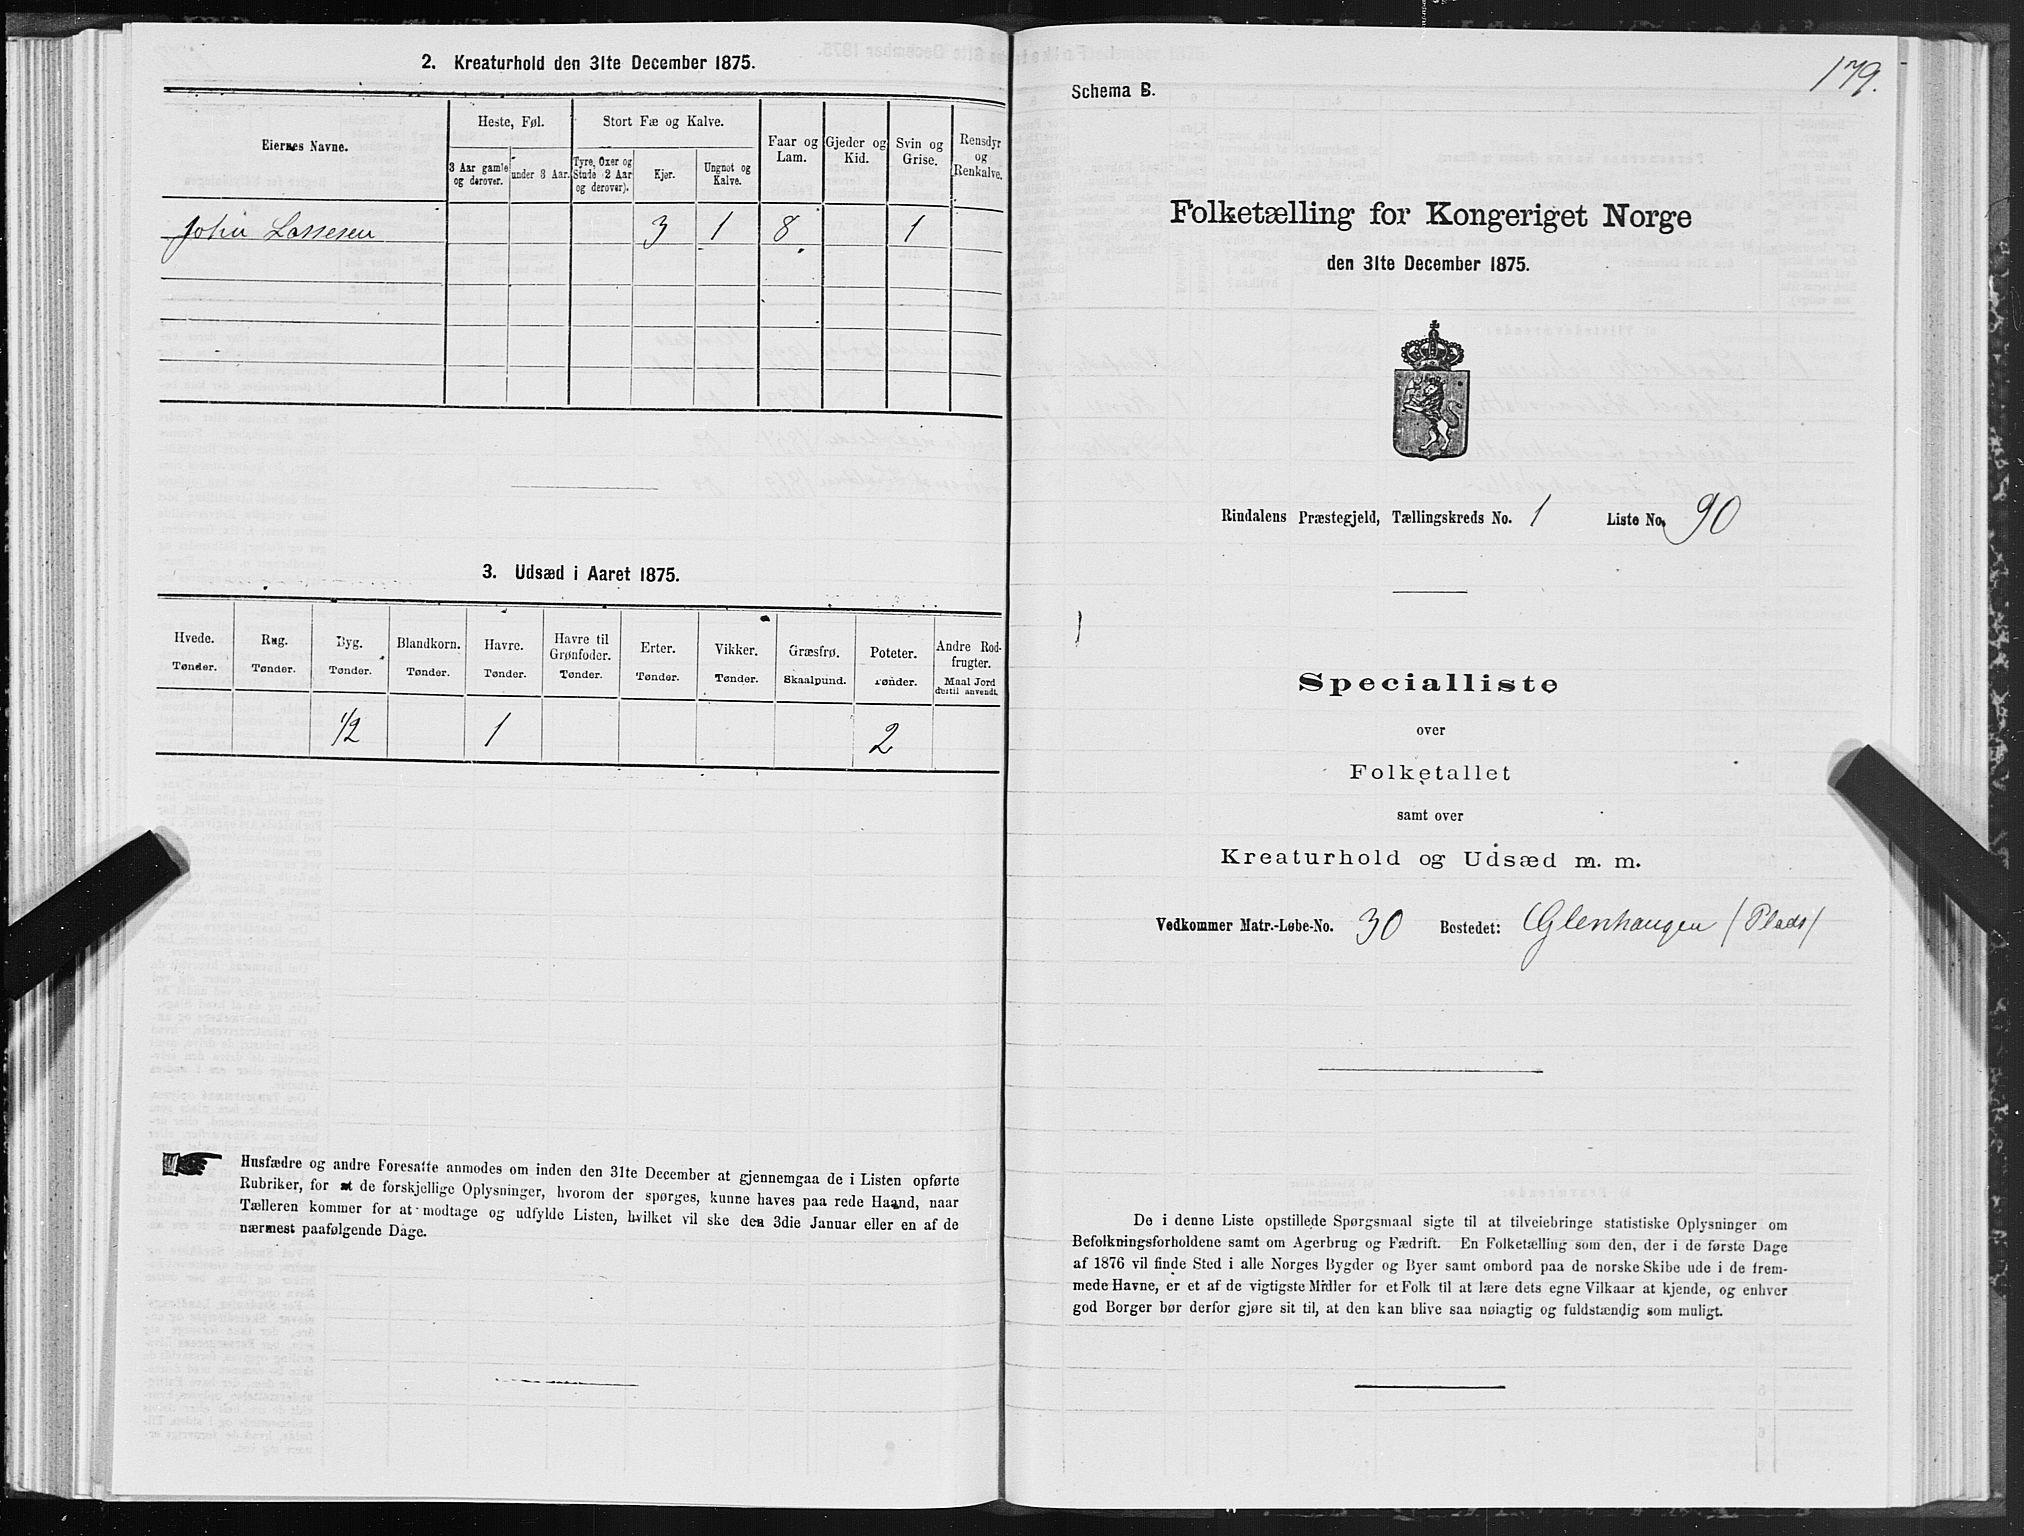 2. Kreaturhold den 31te December 1875.
Eiernes Navne.
Heste, Føl.
Stort Fæ og Kalve.
Faar og Lam.
Gjeder og Kid.
Svin og Grise.
Rensdyr og Renkalve.
3 Aar gamle og derover.
under 3 Aar.
Tyre, Oxer og Stude (2 Aar og derover).
Kjør.
Ungnot og Kalve.
John Lassesen 3 1 8 1
3. Udsæd i Aaret 1875.
Hvede. Rug. Byg. Blandkorn. Havre. Havre til Grønfoder. Erter. Vikker. Græsfrø. Poteter. Andre Rodfrugter.
Tønder. Tønder. Tønder. Tønder. Tønder. Tønder. Tønder. Tønder. Skaalpund. Tønder. Maal Jord dertil anvendt.
1/2 1 2
Husfædre og andre Foresatte anmodes om inden den 31te December at gjennemgaa de i Listen opførte
Rubriker, for at de forskjellige Oplysninger, hvorom der spørges, kunne haves paa rede Haand, naar
Tælleren kommer for at modtage og udfylde Listen, hvilket vil ske den 3die Januar eller en af de
nærmest paafølgende Dage.
179.
Schema B.
Folketælling for Kongeriget Norge
den 31te December 1875.
Rindalens Præstegjeld, Tællingskreds No. 1 Liste No. 90
Specialliste
over
Folketallet
samt over
Kreaturhold og Udsæd m. m.
Vedkommer Matr.-Løbe-No. 30 Bostedet: Glenhaugen (Plads)
De i denne Liste opstillede Spørgsmaal sigte til at tilveiebringe statistiske Oplysninger om
Befolkningsforholdene samt om Agerbrug og Fædrift. En Folketælling som den, der i de første Dage
af 1876 vil finde Sted i alle Norges Bygder og Byer samt ombord paa de norske Skibe ude i de frem-
mede Havne, er et af de vigtigste Midler for et Folk til at lære dets egne Vilkaar at kjende, og enhver
god Borger bør derfor gjøre sit til, at den kan blive saa nøiagtig og fuldstændig som muligt.